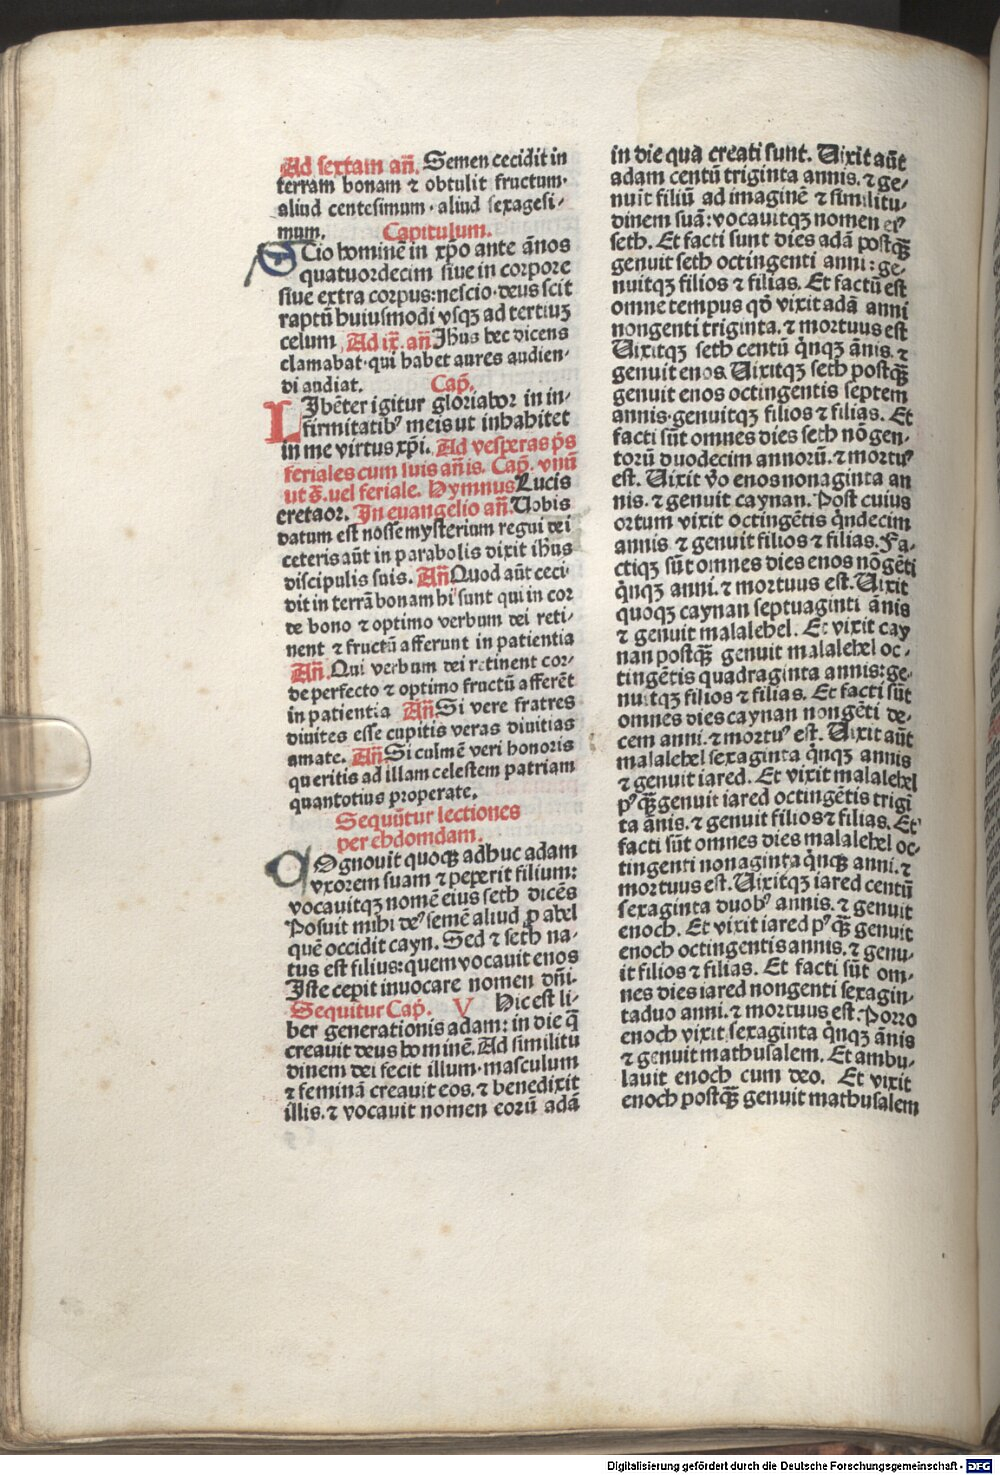 Ad sextam añ. Semen cecidit in
terram bonam ⁊ obtulit fructum·
aliud centesimum·aliud sexagesi⸗
mum. Capitulum.
SCio hominē in xp̄o ante ānos
quatuordecim siue in corpore
siue extra corpus:nescio·deus scit
raptū huiusmodi vsqꝫ ad tertiuꝫ
celum Ad ix. añ Jhus hec dicens
clamabat·qui habet aures audien⸗
di audiat. Cap̄.
LJbēter igitur gloriabor in in⸗
firmitatibꝰ meis ut inhabitet
in me virtus xp̄i. Ad vesperas p̄s
feriales cum suis añis. Cap̄. viiū
ut s̄. uel feriale. Hymnus Lucis
cretaor. In euangelio añ. Uobis
datum est nosse mysterium regni dei
ceteris aūt in parabolis dixit ih̄us
discipulis suis. Añ Quod aūt ceci⸗
dit in terrā bonam hi sunt qui in cor
de bono ⁊ optimo verbum dei reti⸗
nent ⁊ fructū afferunt in patientia
Añ. Qui verbum dei retinent cor⸗
de perfecto ⁊ optimo fructū afferēt
in patientia Añ Si vere fratres
diuites esse cupitis veras diuitias
amate. Añ Si culmē veri honoris
queritis ad illam celestem patriam
quantotius properate.
Sequūtur lectiones
per ebdomdam.
COgnouit quoqꝫ adhuc adam
vxorem suam ⁊ peperit filium:
vocauitqꝫ nomē eius seth dicēs
Posuit mihi deꝰ semē aliud ꝓ abel
quē occidit cayn. Sed ⁊ seth na⸗
tus est filius:quem vocauit enos
Iste cepit inuocare nomen dñi·
Sequitur Cap̄. V Hic est li⸗
ber generationis adam: in die q̄
creauit deus hominē. Ad similitu
dinem dei fecit illum·masculum
⁊ feminā creauit eos. ⁊ benedixit
illis. ⁊ vocauit nomen eorū adā
in die qua creati sunt. Uixit aūt
adam centū triginta annis. ⁊ ge⸗
nuit filiū ad imaginē ⁊ similitu⸗
dinem suā: vocauitqꝫ nomen eiꝰ
seth. Et facti sunt dies adā postqꝫ̄
genuit seth octingenti anni: ge⸗
nuitqꝫ filios ⁊ filias. Et factū est
omne tempus qd̄ vixit adā anni
nongenti triginta. ⁊ mortuus est
Uixitqꝫ seth centū q̇nqꝫ ānis. ⁊
genuit enos. Uixitqꝫ seth postqꝫ̄
genuit enos octingentis septem
annis·genuitqꝫ filios ⁊ filias. Et
facti sūt omnes dies seth nōgen⸗
torū duodecim annorū. ⁊ mortuꝰ
est. Uixit v̄o enos nonaginta an
nis. ⁊ genuit caynan. Post cuius
ortum vixit octingētis q̇ndecim
annis ⁊ genuit filios ⁊ filias. Fa⸗
ctiqꝫ sūt omnes dies enos nōgēti
q̇nqꝫ anni. ⁊ mortuus est. Uixit
quoqꝫ caynan septuaginti ānis
⁊ genuit malalehel. Et vixit cay
nan postqꝫ̄ genuit malalehel oc⸗
tingētis quadraginta annis: ge⸗
nuitqꝫ filios ⁊ filias. Et facti sūt
omnes dies caynan nongēti de⸗
cem anni. ⁊ mortuꝰ est. Uixit aūt
malalehel sexaginta q̇nqꝫ annis
⁊ genuit iared. Et vixit malalehel
pꝰ qꝫ̄ genuit iared octingētis trigī
ta ānis. ⁊ genuit filios ⁊ filias. Et
facti sūt omnes dies malalehel oc⸗
tingenti nonaginta q̇nqꝫ anni. ⁊
mortuus est. Uixitqꝫ iared centū
sexaginta duobꝰ annis. ⁊ genuit
enoch. Et vixit iared pꝰ qꝫ̄ genuit
enoch octingentis annis. ⁊ genu⸗
it filios ⁊ filias. Et facti sūt om⸗
nes dies iared nongenti sexagin⸗
taduo anni. ⁊ mortuus est. Porro
enoch vixit sexaginta q̇nqꝫ ānis
⁊ genuit mathusalem. Et ambu⸗
lauit enoch cum deo. Et vixit
enoch postqꝫ̄ genuit mathusalem
Digitalisierung gefördert durch die Deutsche Forschungsgemeinschaft - DFG